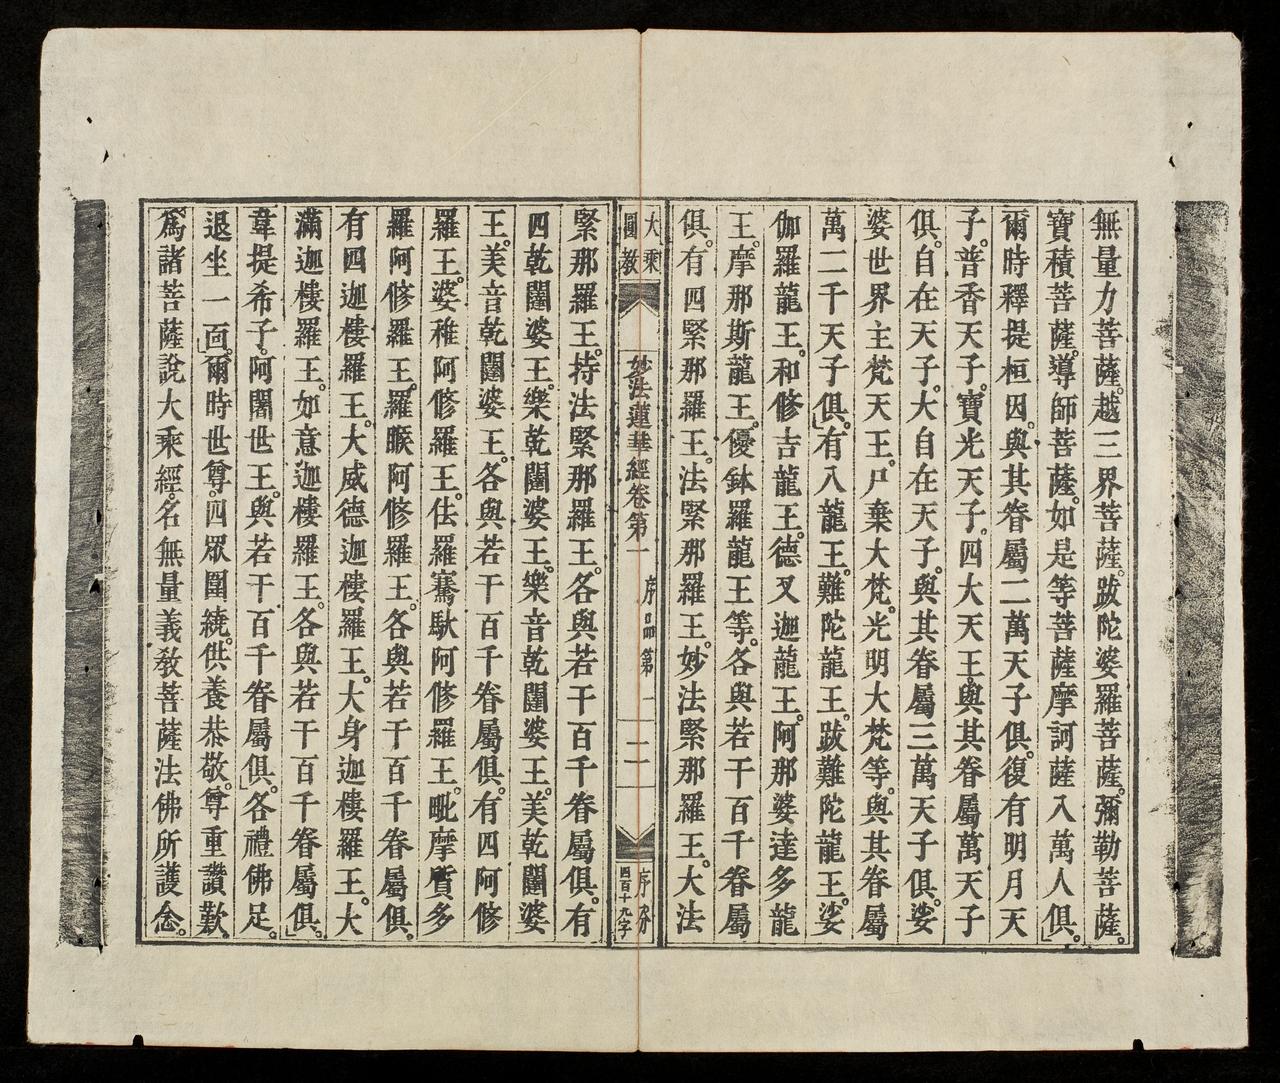 無量力菩薩。越三界菩薩。跋陀婆羅菩薩。彌勒菩薩。
寶積菩薩。導師菩薩。如是等菩薩摩訶薩八萬人俱。」
爾時釋提桓因。與其眷屬二萬天子俱。復有明月天
子。普香天子。寶光天子。四大天王。與其眷屬萬天子
俱。自在天子。大自在天子。與其眷屬三萬天子俱。娑
婆世界主梵天王。尸棄大梵。光明大梵等。與其眷屬
萬二千天子俱。」有八龍王。難陀龍王。跋難陀龍王。娑
伽羅龍王。和修吉龍王。德叉迦龍王。阿那婆達多龍
王。摩那斯龍王。優鉢羅龍王等。各與若干百千眷屬
俱。有四緊那羅王。法緊那羅王。妙法緊那羅王。大法
大乘
圓教
妙法蓮華經卷第一
序品第一
二
序分
四百十九字
緊那羅王。持法緊那羅王。各與若干百千眷屬俱。有
四乾闥婆王。樂乾闥婆王。樂音乾闥婆王。美乾闥婆
王。美音乾闥婆王。各與若干百千眷屬俱。有四阿修
羅王。婆稚阿修羅王。佉羅騫馱阿修羅王。毗摩質多
羅阿修羅王。羅睺阿修羅王。各與若干百千眷屬俱。
有四迦樓羅王。大威德迦樓羅王。大身迦樓羅王。大
滿迦樓羅王。如意迦樓羅王。各與若干百千眷屬俱。」
韋提希子。阿闍世王。與若干百千眷屬俱。」各禮佛足。
退坐一面。」爾時世尊。四眾圍繞。供養恭敬。尊重讚歎。
為諸菩薩說大乘經。名無量義教菩薩法佛所護念。